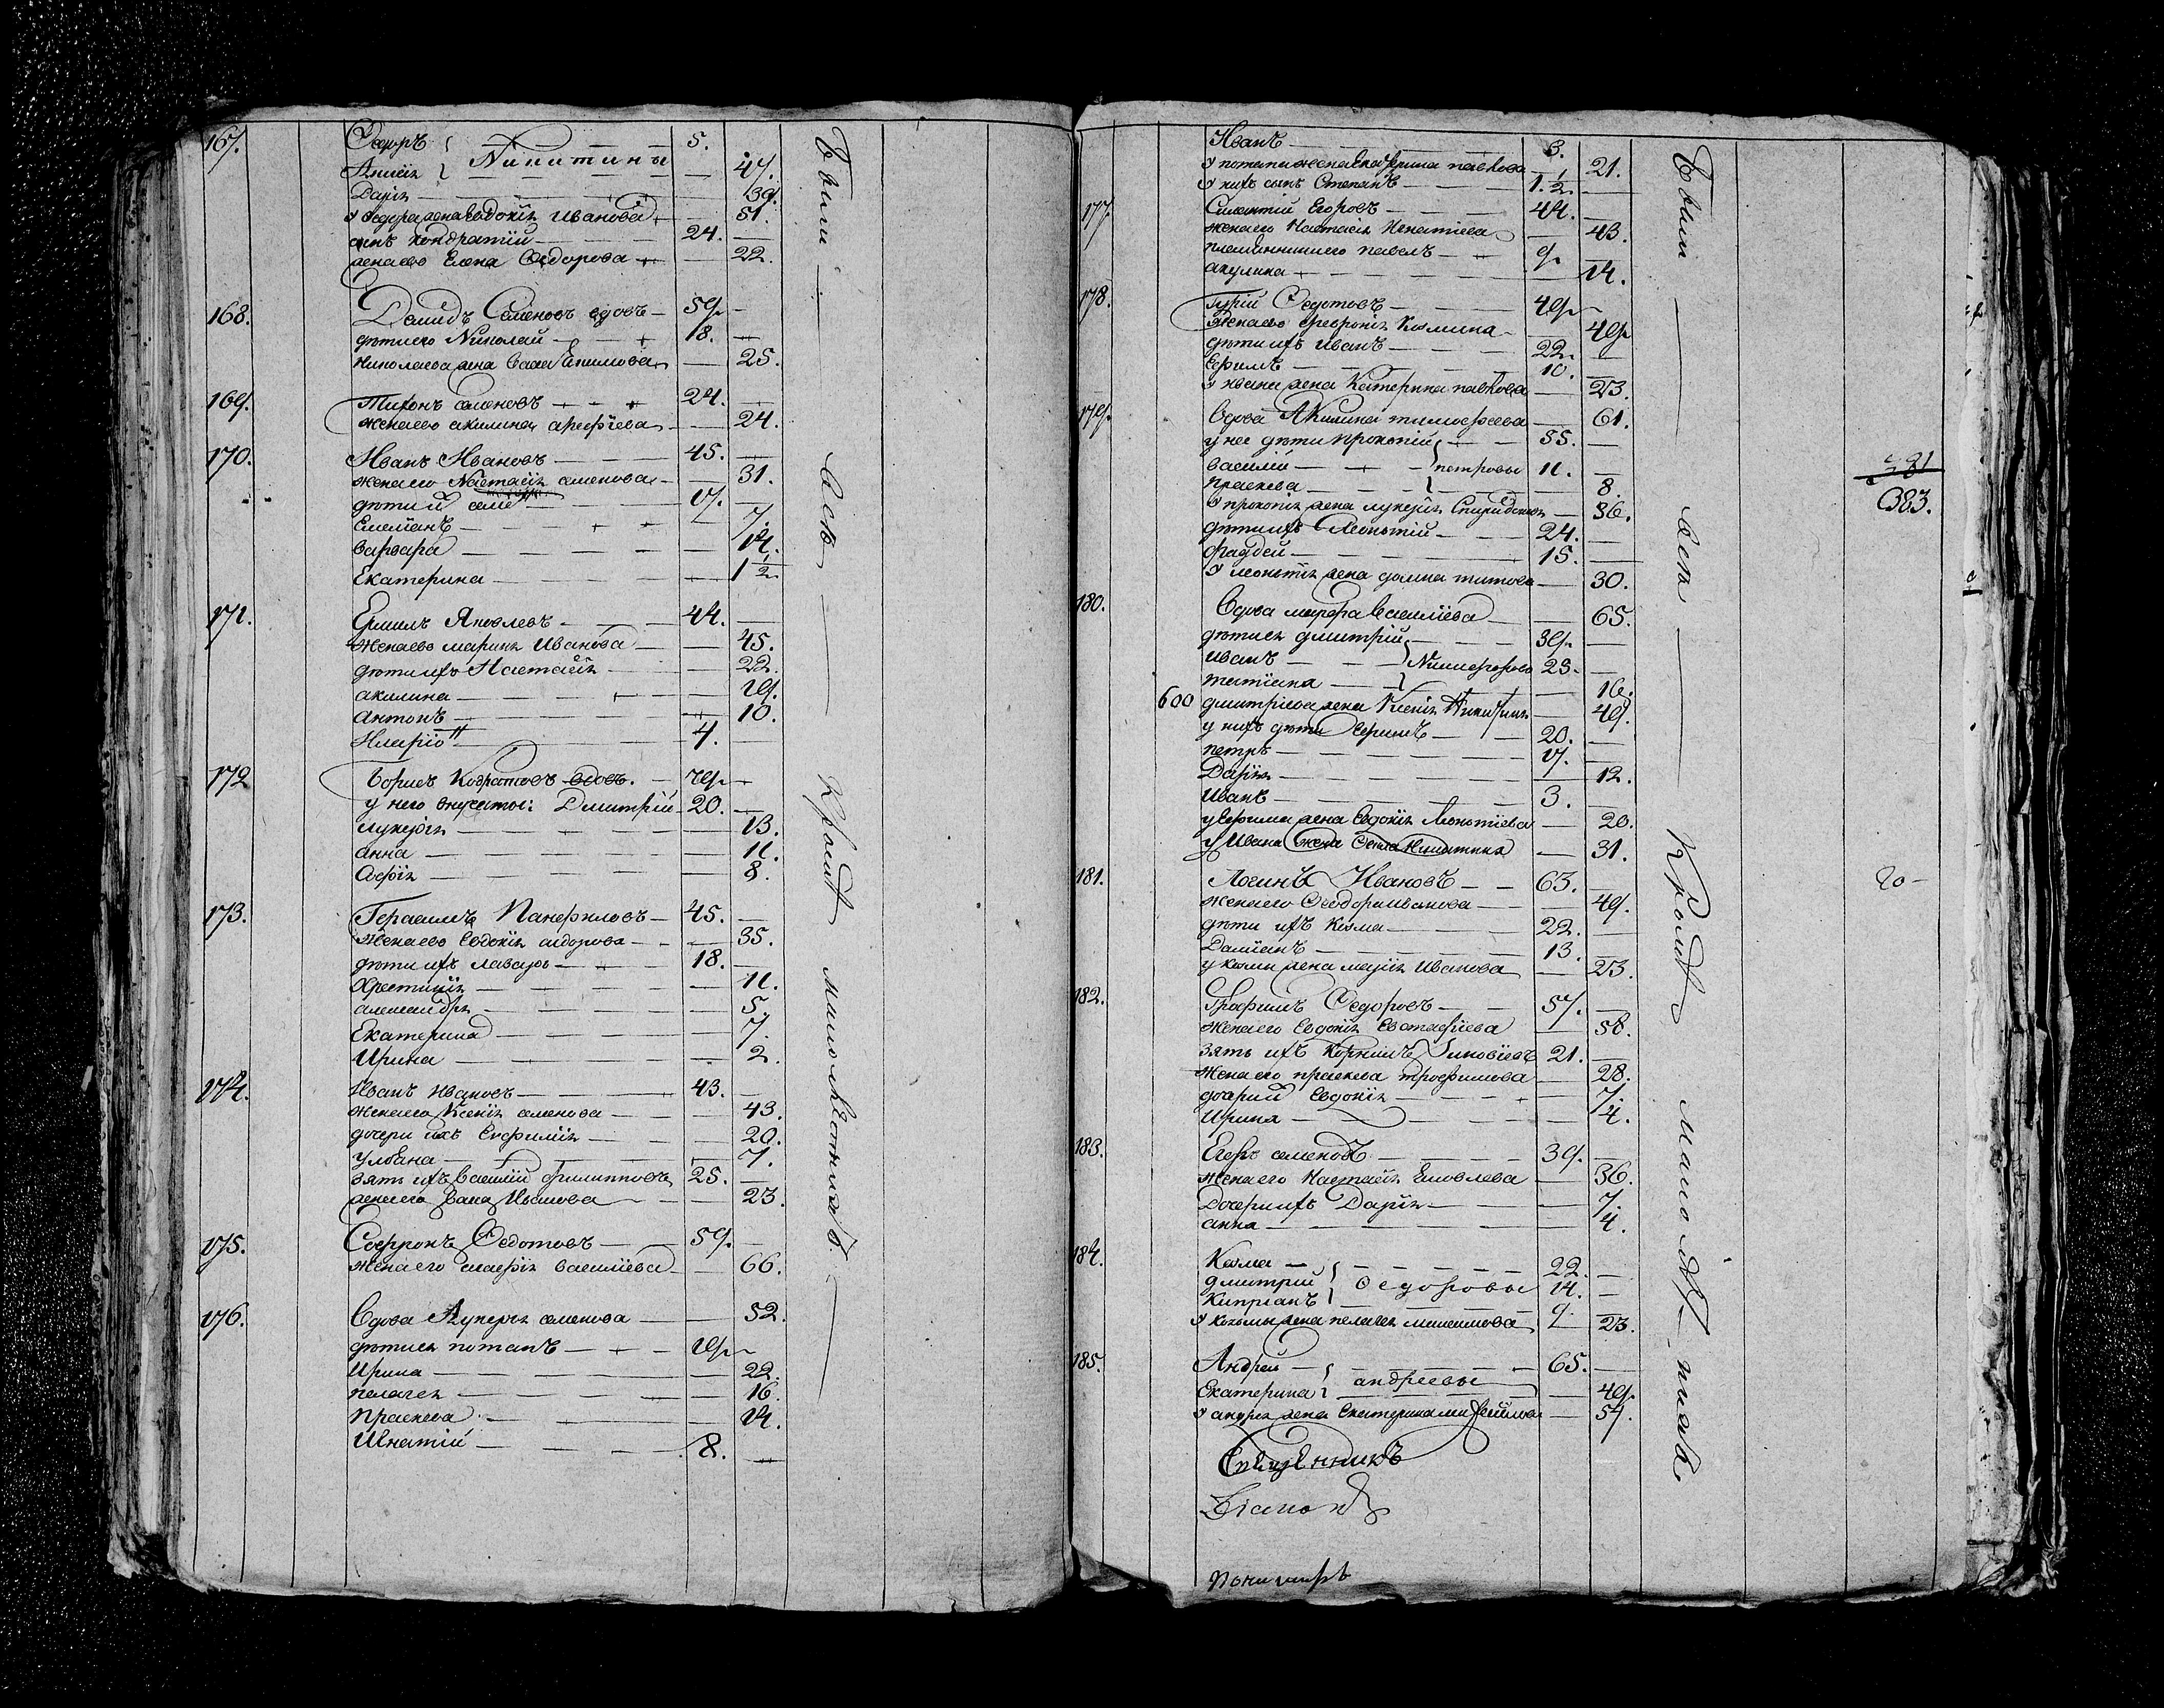 167. Ѳедоръ 5.
Никитины
47.
Дарія 39.
у Ѳедора жена Евдокія Иванова 51.
сынъ Кондратій 24.
жена его Елена Ѳедорова 22.
168. Демидъ Семеновъ вдовъ 59
дѣти его Николай 18.
Николаева жена Васса Екимова 25.
169. Тихонъ семеновъ 24.
жена его акилина арефіева 24.
170. Иванъ Ивановъ 45.
жена его Настасія семенова 31.
дѣти и 17.
Емеліанъ 7.
варвара 14.
Екатерина 1 1/2
171. Ермилъ Яковлевъ 44.
жена его марина Иванова 45.
дѣти ихъ Настасія 22.
акилина 19.
антонъ 10.
Иларіо 4.
172 Борисъ вдовъ. 79
у него внучаты: Дмитрій 20.
лукерія 13.
анна 11.
Софія 8.
173. Герасимъ Панфиловъ 45.
жена его Евдокія сидорова 35.
дѣти ихъ лазарь 18.
Христинія 11.
александра 5.
Екатерина 7.
Ирина 2.
174. Иванъ Ивановъ 43.
жена его Ксенія семенова 43.
дочери ихъ Евфимія 20.
уліана 7.
зять ихъ Василій филипповъ 25.
жена его Васса Иванова 23.
175. Софронъ Ѳедотовъ 59.
жена его Василіева 66.
176. Вдова Лукерія семенова 52.
дѣти ея потапъ 19
Ирина 22.
пелагея 16.
праскева 14.
Игнатій 8.
Были
всѣ
Кромѣ
малолѣтныхъ.
Иванъ 3.
у потапа жена Екатерина павлова 21.
у нихъ сынъ Степанъ 1. 1/2
177. Егоровъ 44.
жена его Настасія Игнатіева 43.
племянники его павелъ 9
акулина 14.
178. Гурій Ѳедотовъ 49
жена его февронія Козмина 49
дѣти ихъ Иванъ 22.
Ефимъ 10.
у ивана жена Катерина павлова 23.
179. Вдова Акилина тимофеева 61.
у нее дѣти прокопій 35.
василій петровы 11.
праскева 8.
у прокопія жена лукерія Спиридонова 36.
дѣти ихъ Леонтій 24.
фаддей 15.
у леонтія жена домна титова 30.
180. Вдова марфа Василіева 65.
дѣти ея дмитрій 39.
иванъ Никифоровы 23.
татіана 16.
600 дмитріева жена Ксенія 49.
у нихъ дѣти Ефимъ 20.
петръ 17.
Дарія 12.
Иванъ 3.
у Ефима жена Евдокія Леонтіева 20.
у Ивана жена Никитина 31.
181. Логинъ Ивановъ 63.
жена его Ѳеодора иванова 49.
дѣти ихъ Козма 22.
Даміанъ 13.
у козмы жена марія Иванова 23.
182. Трофимъ Ѳедоровъ 57.
жена его Евдокія Евстафіева 58.
зять ихъ Корнилъ Зиновіевъ 21.
жена его праскева трофимова 28.
дочери Евдокія 7.
Ирина 4.
183. Егоръ семеновъ 39.
жена его Настасія Яковлева 36.
Дочери ихъ Дарія 7.
анна 4.
184. Козма 22.
дмитрій Ѳедоровы 14.
Кипріанъ 9.
у козьмы жена пелагея 23.
185. Андрей 65.
андреевы
Екатерина 49.
у андрея жена Екатерина 57.
Священникъ
Пономарь
Были
всѣ
Кромѣ
малолѣтныхъ
381
383.
20